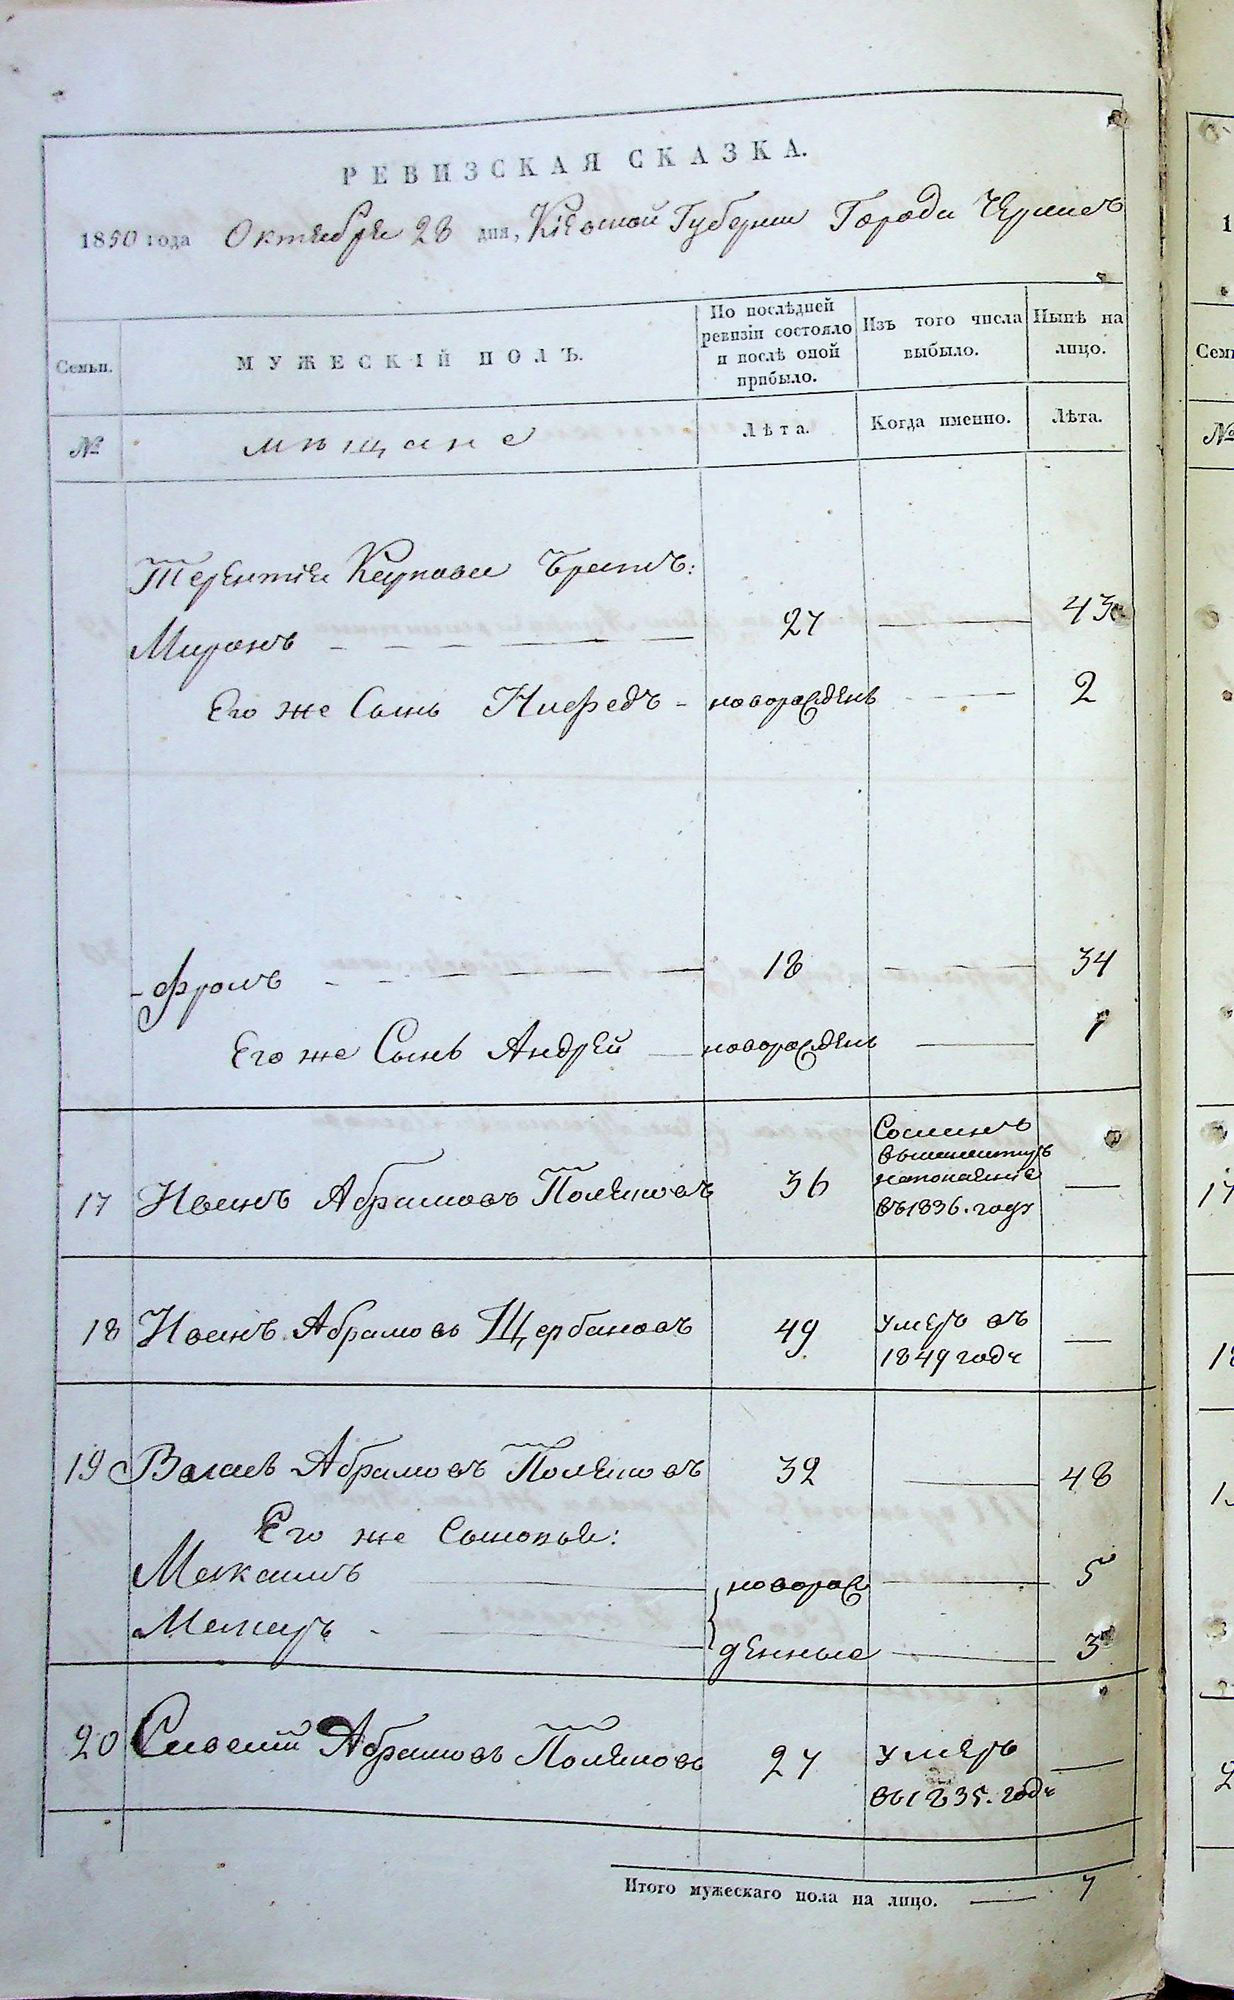 РЕВИЗСКАЯ СКАЗКА.
1850 года Октября 28 дня, Кіевской Губерніи Города
Семьи.
МУЖЕСКІЙ ПОЛЪ.
По послѣдней ревизіи состояло и послѣ оной прибыло.
Изъ того числа выбыло.
Нынѣ на лицо.
№
мѣщане
Лѣта.
Когда именно.
Лѣта.
Терентія Карпова Братъ:
Миронъ 27 — 43
Его же Сынъ новорожденъ — 2
18 — 34
Его же Сынъ Андрей — новорожденъ — 1
17 Иванъ Абрамовъ Поляковъ 36
въ 1836. году —
18 Иванъ Абрамовъ Щербаковъ 49 умеръ въ
1849 годѣ —
19 Абрамовъ Поляковъ 32 — 48
Его же Сыновья:
Максимъ — новорож — 5
— денные — 3
20 Савелій Абрамовъ Поляковъ 27 умеръ —
въ 1835. годѣ
Итого мужескаго пола на лицо. — 7
№